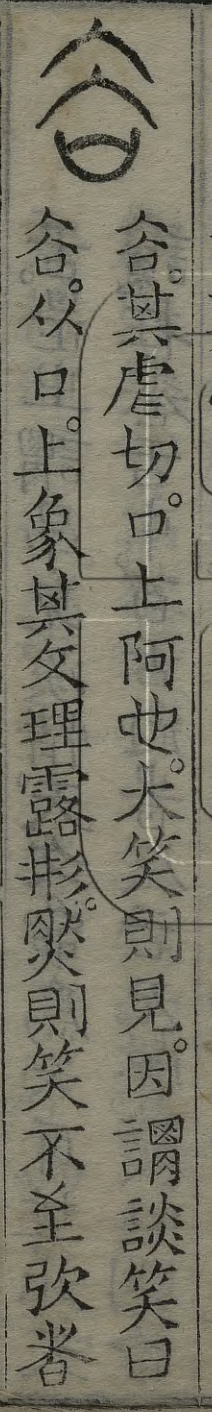 𧮫
𧮫。其虐切。口上阿也。大笑則見。因謂談笑曰
𧮫。从口。上象其文理露形。然則笑不至弞者